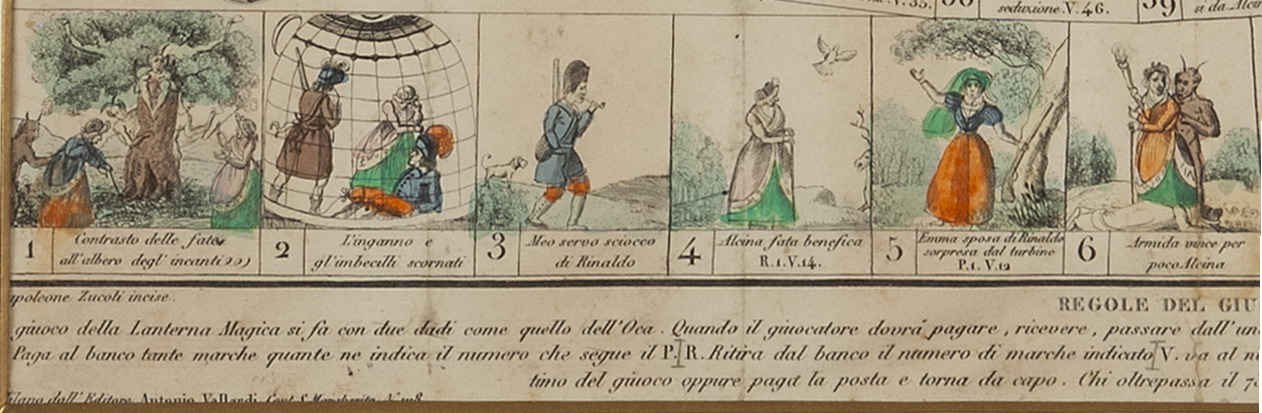 V. 35.
seduzione V. 46.
39
si da Alcin
1
Contrasto delle fate
all'albero degl' incanti
2
L'inganno e
gl'imbecilli scornati
3
Meo servo sciocco
di Rinaldo
4
Alcina fata benefica
R. 1. V. 14.
5
Emma sposa di Rinaldo
sorpresa dal turbine
P. 1. V. 12
6
Armida vince per
poco Alcina
apoleone Zucoli incise.
REGOLE DEL GIU
giuoco della Lanterna Magica si fa con due dadi come quello dell'Oca. Quando il giuocatore dovrà pagare, ricevere, passare dall'un
Paga al banco tante marche quante ne indica il numero che segue il P. R. Ritira dal banco il numero di marche indicato V. va al n
timo del giuoco oppure paga la posta e torna da capo. Chi oltrepassa il 7
ilano dall' Editore Antonio Vallardi Cont. S. Margherita N.